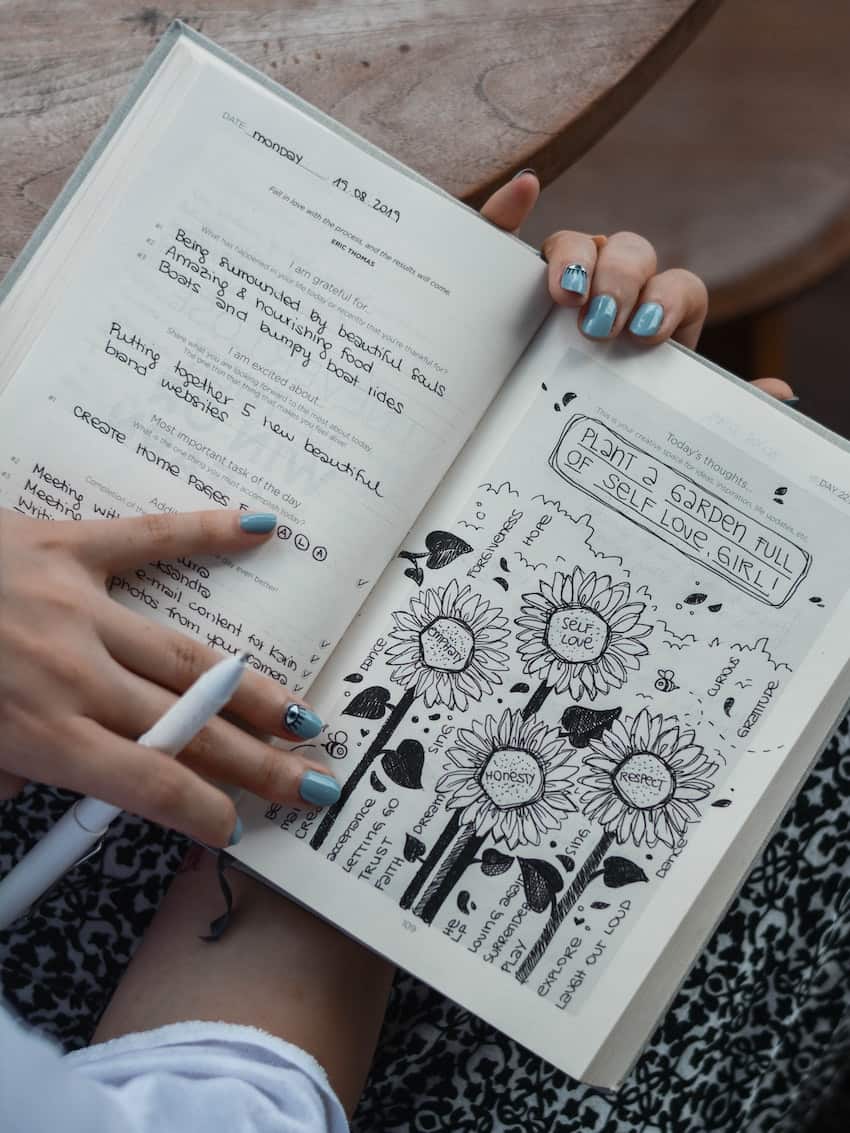 DATE monday 19.08.2019
Fall in love with the process, and the results will come.
ERIC THOMAS
I am grateful for...
What has happened in your life today or recently that you're thankful for?
#1 Being surrounded by beautiful souls
#2 Amazing & nourishing food
#3 Boats and bumpy boat rides
I am excited about...
Share what you are looking forward to the most about today.
The one thing that makes you feel alive!
Putting together 5 new beautiful
brand websites
Most important task of the day
What is the one thing you must accomplish today?
#1 CREATE HOME PAGES
ALA
Completion of
day even better!
#2 Meeting with
#3 Meeting
Writing e-mail content for Karin
photos from your camera
DAY 22
Today's thoughts...
This is your creative space for ideas, inspiration, life updates, etc.
PLANT A GARDEN FULL
OF SELF LOVE, GIRL!
FORGIVENESS
HOPE
SELF
LOVE
EMPATHY
HONESTY
RESPECT
CURIOUS
GRATITUDE
Dance
SING
DREAM
SING
Dance
acceptance
LETTING GO
TRUST
FAITH
HELP
LOVING AGAIN
SURRENDER
PLAY
EXPLORE
LAUGH OUT LOUD
109